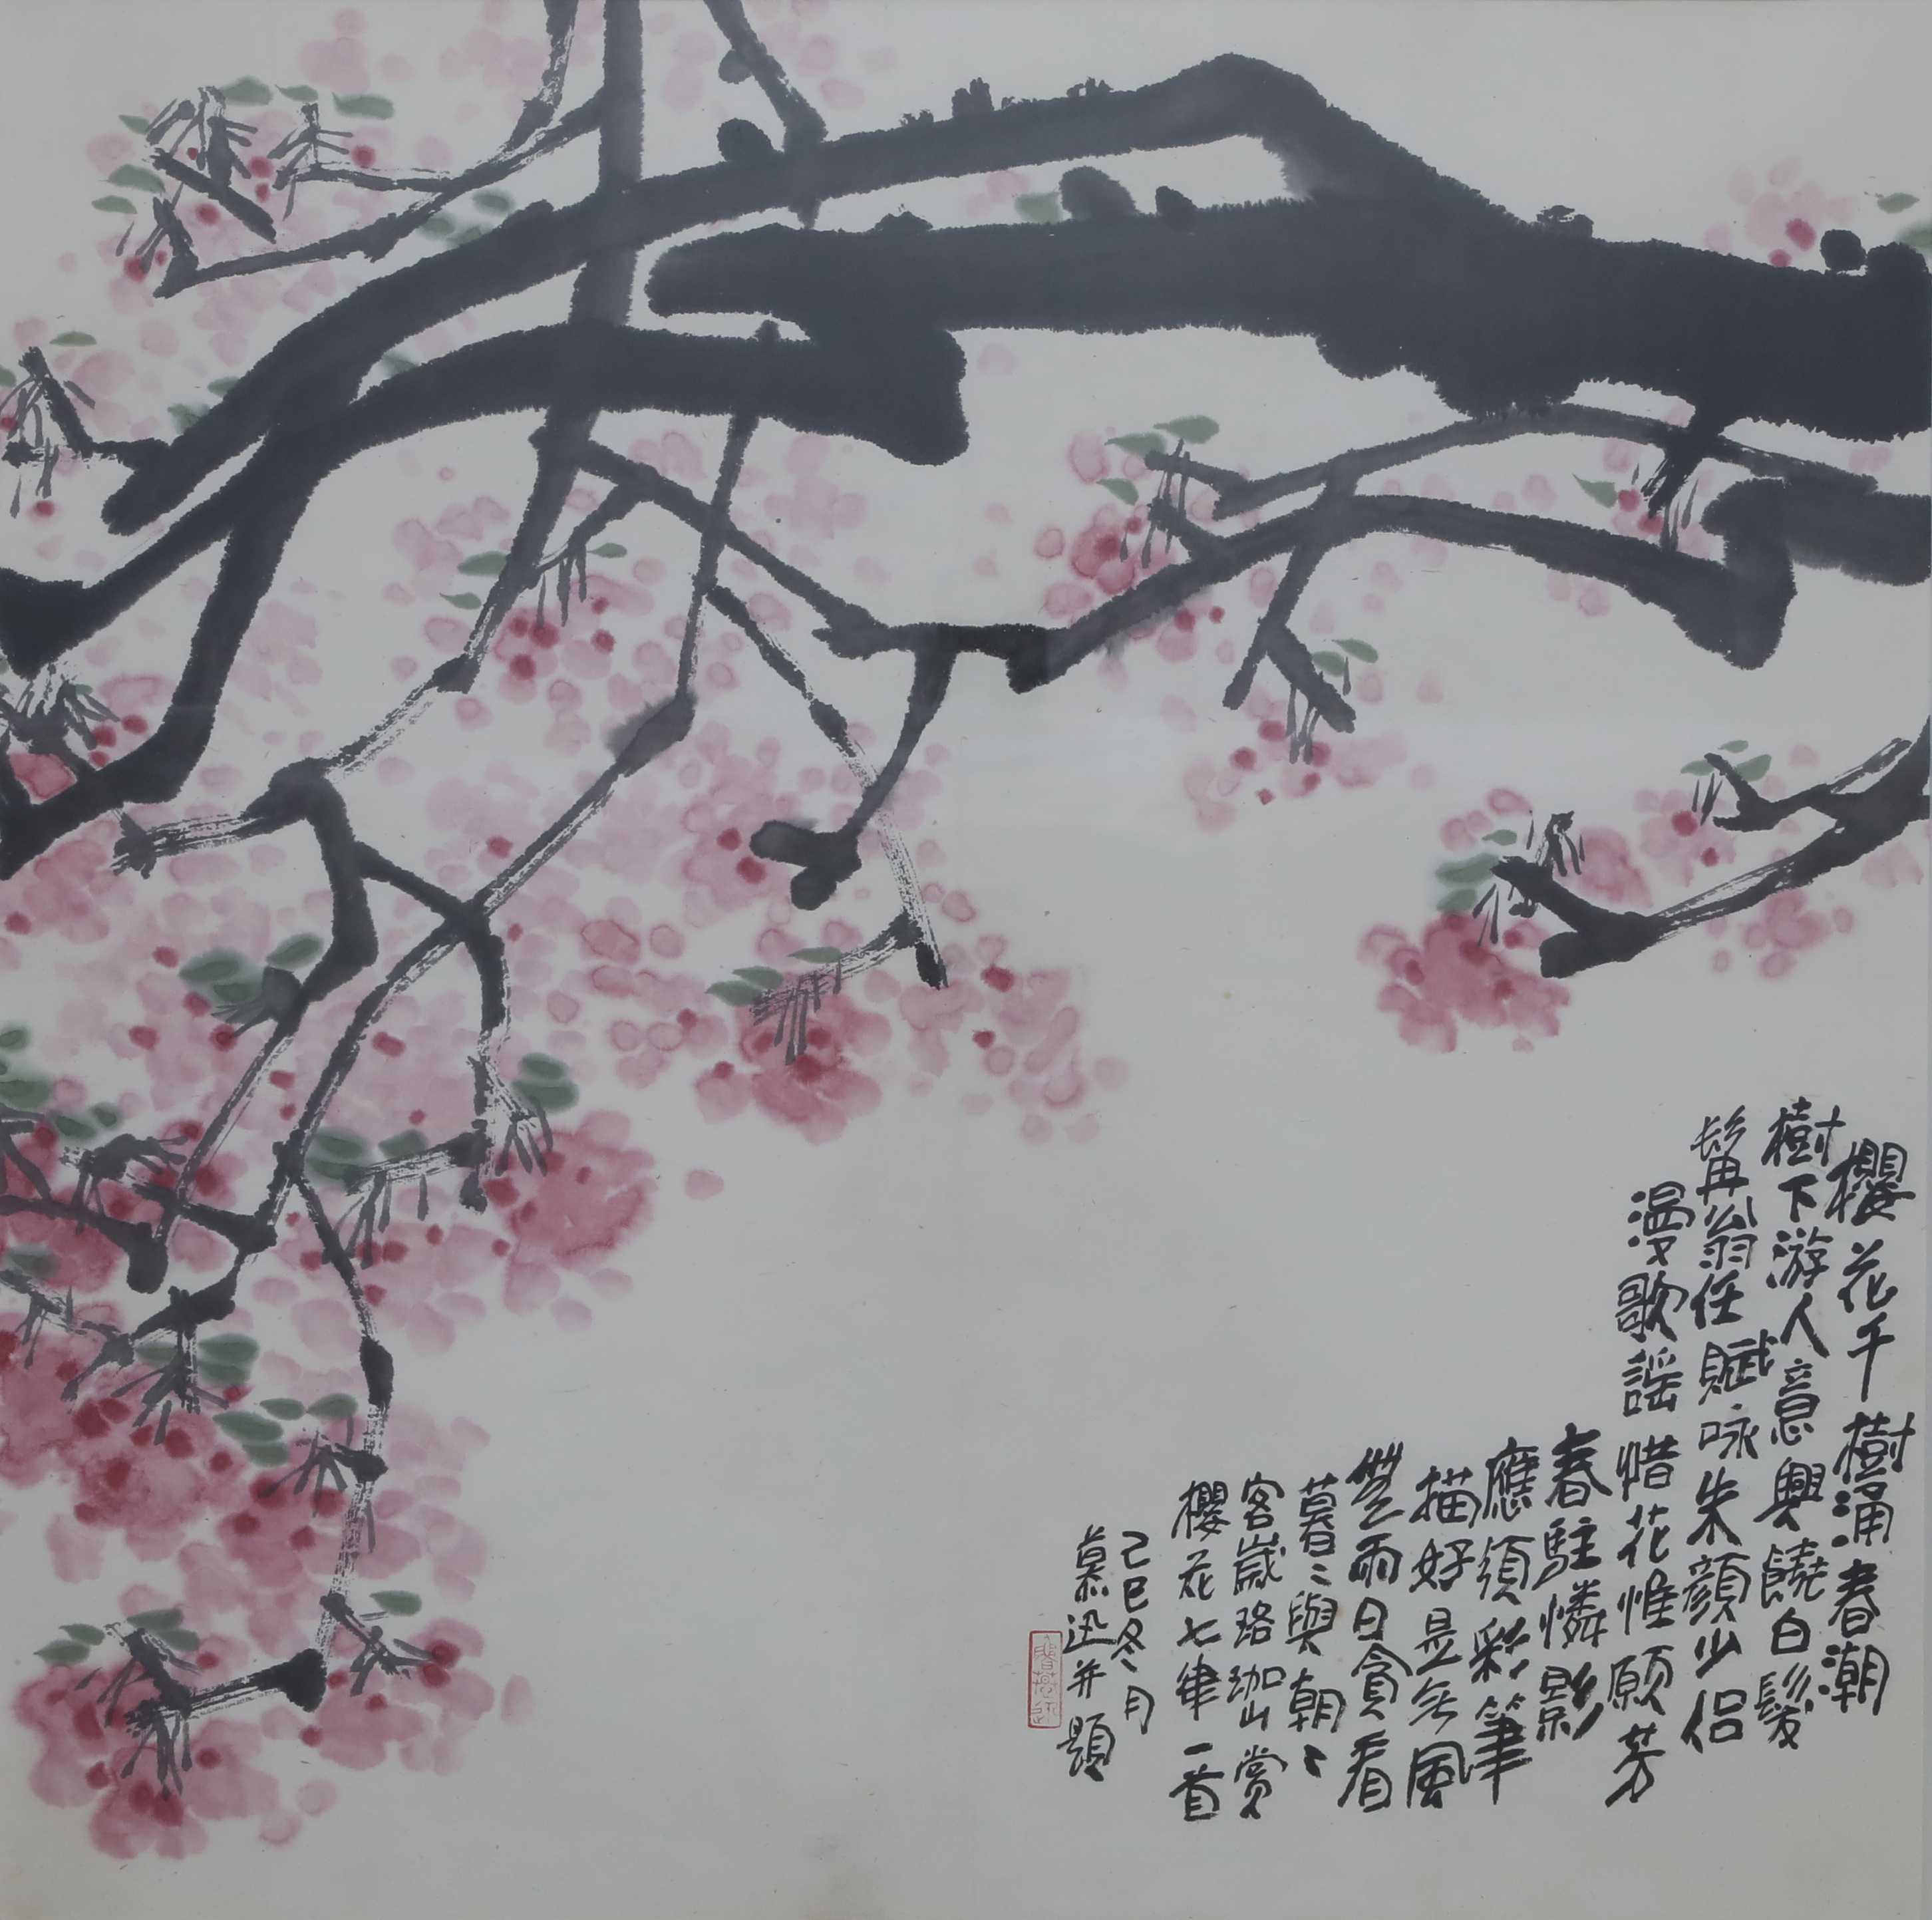 櫻花千樹涌春潮
樹下游人意興饒白髮
髯翁任賦咏朱顏少侶
漫歌謡惜花惟願芳
春駐憐影
應須彩筆
描好是无風
無雨日貪看
暮〻與朝〻
客歲珞珈山賞
櫻花七律一首
己巳冬月
慕迅并題